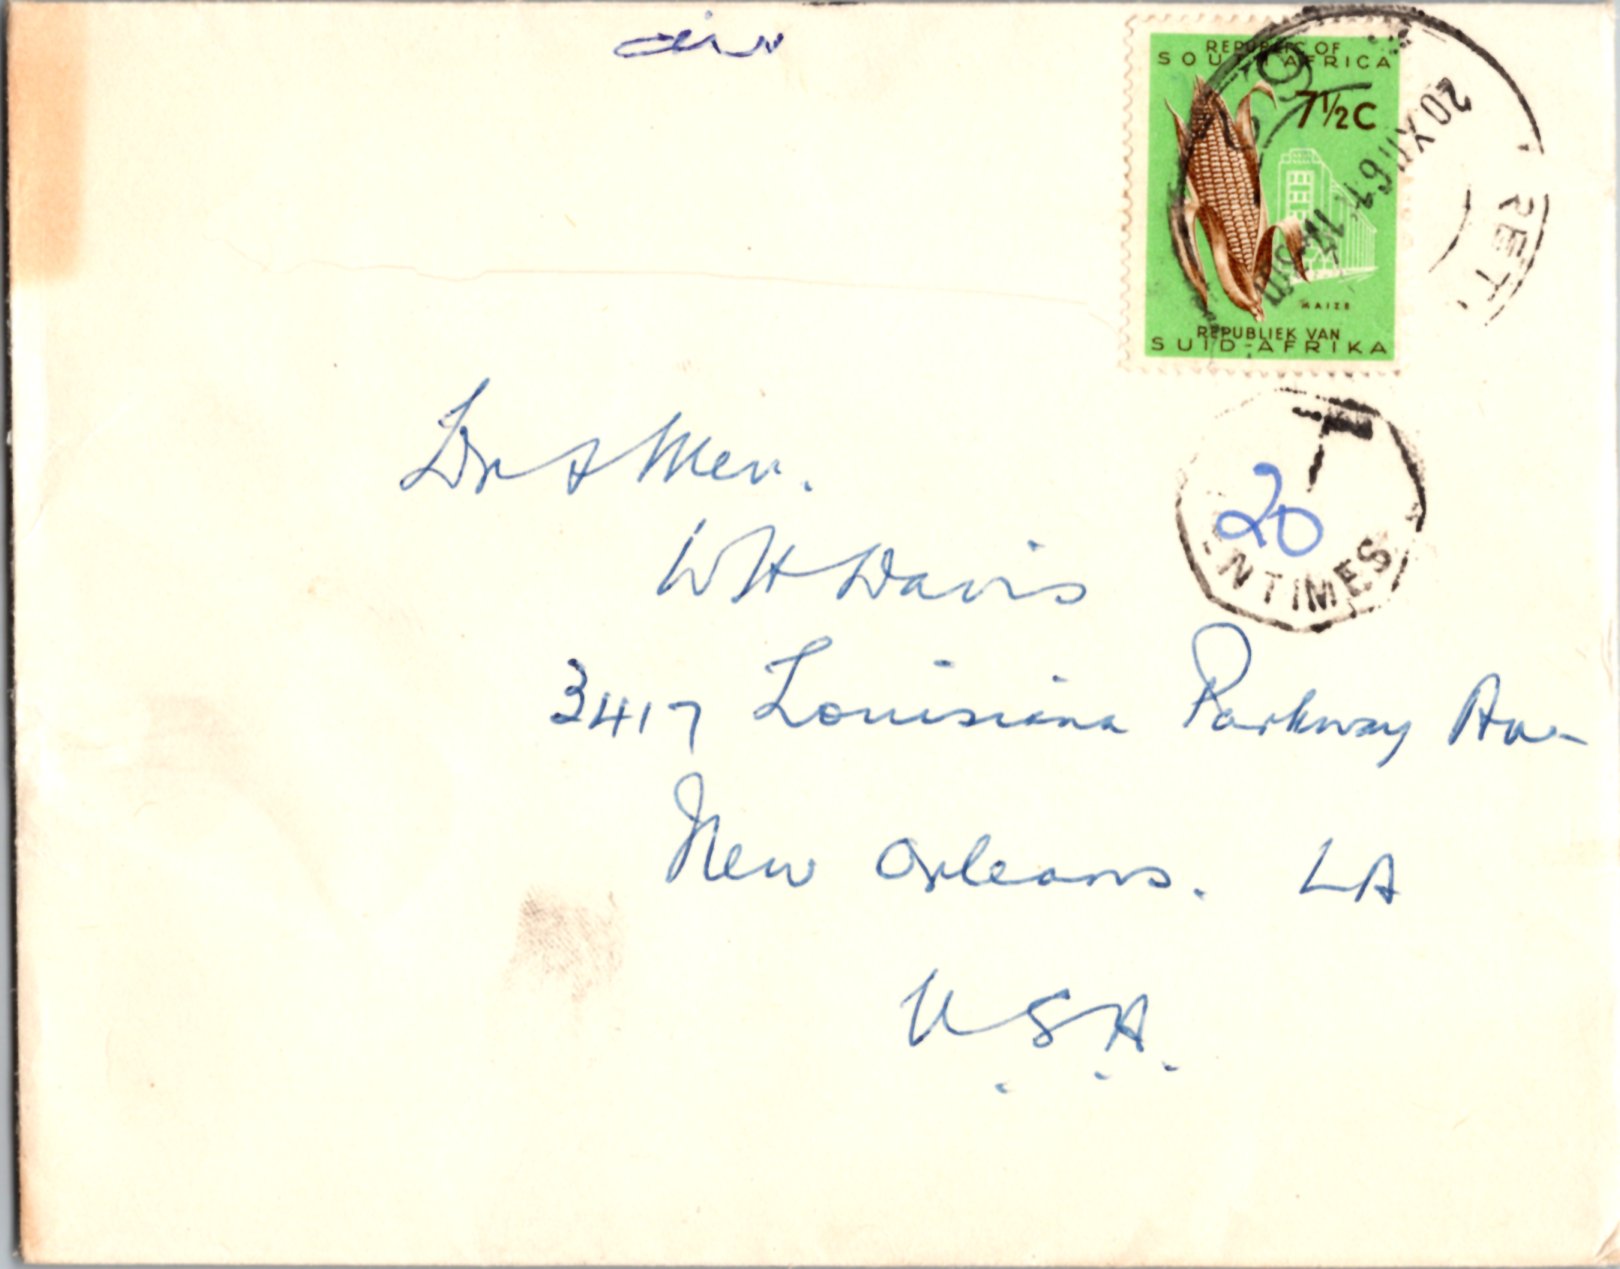 air
REPUBLIC OF
SOUTH AFRICA
7½C
MAIZE
REPUBLIEK VAN
SUID-AFRIKA
20 XII 61
RET
T
20
NTIMES
Dr & Mev.
W H Davis
3417 Louisiana Parkway Ave
New Orleans. LA
U.S.A.